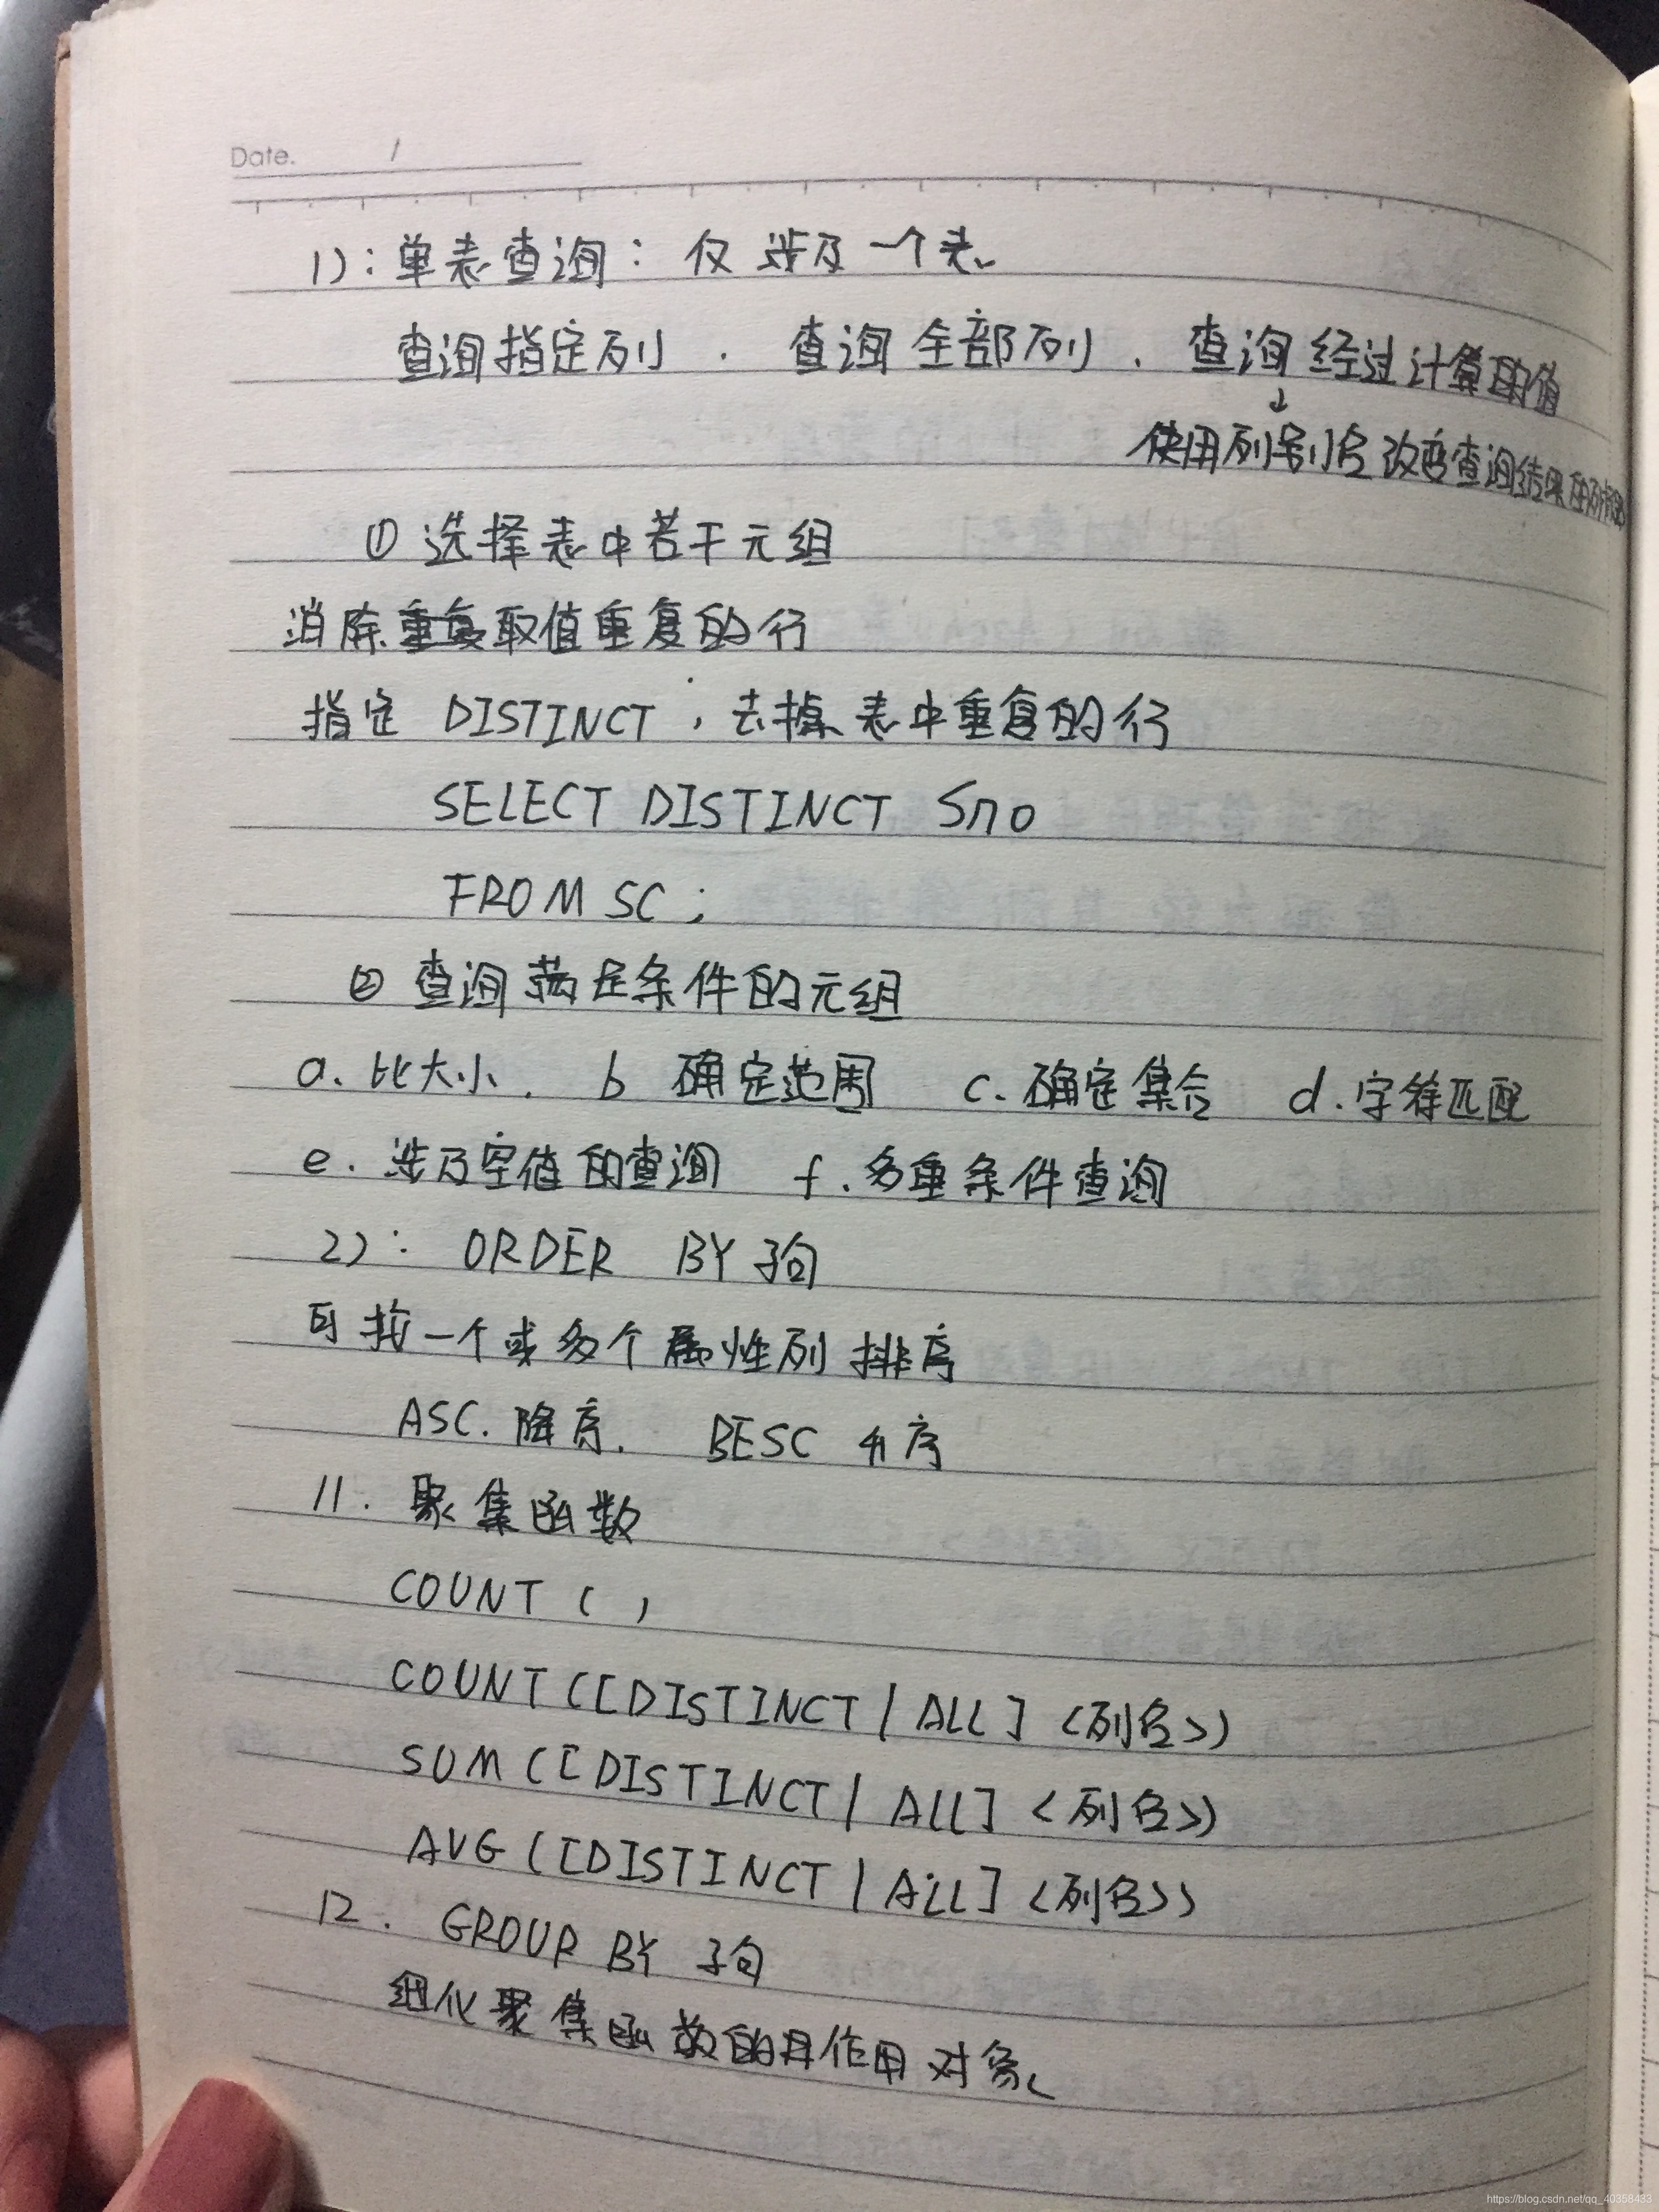 Date. /
1): 单表查询: 仅涉及一个表
查询指定列 . 查询全部列 . 查询经过计算的值
↓
使用列别名改变查询结果的列标题
① 选择表中若干元组
消除重复取值重复的行
指定 DISTINCT , 去掉表中重复的行
SELECT DISTINCT Sno
FROM SC ;
② 查询满足条件的元组
a. 比大小 . b 确定范围 c. 确定集合 d. 字符匹配
e. 涉及空值的查询 f. 多重条件查询
2): ORDER BY 子句
可按一个或多个属性列排序
ASC. 降序. BESC 升序
11. 聚集函数
COUNT ( )
COUNT ([DISTINCT | ALL] <列名>)
SUM ([DISTINCT | ALL] <列名>)
AVG ([DISTINCT | ALL] <列名>)
12. GROUP BY 子句
细化聚集函数的作用对象
https://blog.csdn.net/qq_40358433